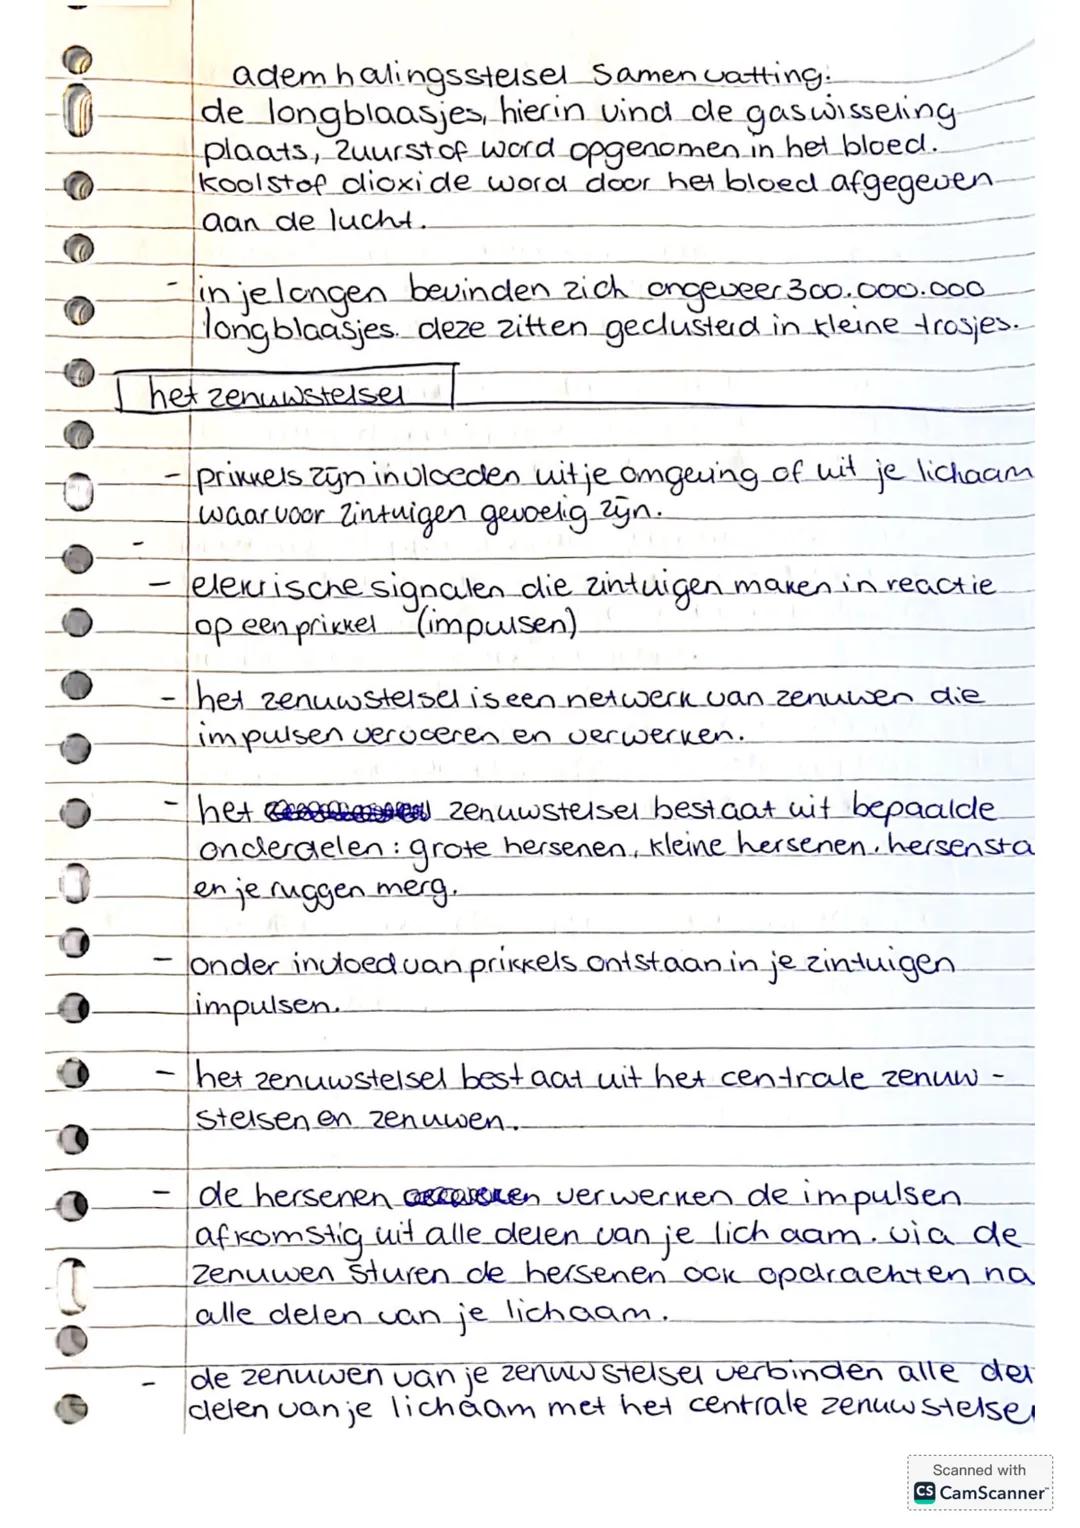 ademhalingsstelsel Samenvatting:
de longblaasjes, hierin vind de gaswisseling
plaats, zuurstof word opgenomen in het bloed.
koolstof dioxide word door het bloed afgegeven
aan de lucht.
- in je longen bevinden zich ongeveer 300.000.000
longblaasjes. deze zitten geclusterd in kleine trosjes.
het zenuwstelsel
- prikkels zijn invloeden uit je omgeving of uit je lichaam
waarvoor zintuigen gevoelig zijn.
-
- elektrische signalen die zintuigen maken in reactie
op een prikkel (impulsen)
- het zenuwstelsel is een netwerk van zenuwen die
impulsen vervoeren en verwerken.
- het zenuwstelsel bestaat uit bepaalde
onderdelen: grote hersenen, kleine hersenen, hersensta
en je ruggen merg.
- onder invloed van prikkels ontstaan in je zintuigen
impulsen.
- het zenuwstelsel bestaat uit het centrale zenuw-
stelsen en zenuwen.
- de hersenen verwerken de impulsen
afkomstig uit alle delen van je lichaam. via de
zenuwen sturen de hersenen ook opdrachten na
alle delen van je lichaam.
- de zenuwen van je zenuwstelsel verbinden alle del
delen van je lichaam met het centrale zenuwstelsel
Scanned with
CS CamScanner